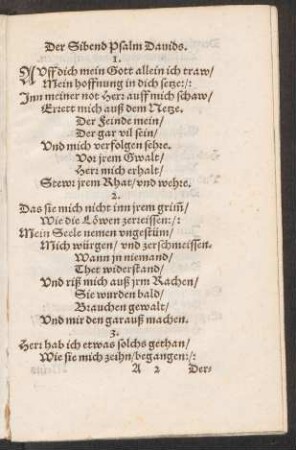 Der Sibend Psalm Dauids.
1.
AVff dich mein Gott allein ich traw/
Mein hoffnung in dich setze:/:
Inn meiner not Herr auff mich schaw/
Errett mich auß dem Netze.
Der Feinde mein/
Der gar vil sein/
Vnd mich verfolgen sehre.
Vor jrem Gwalt/
Herr mich erhalt/
Stewr jrem Rhat/vnd wehre.
2.
Das sie mich nicht inn jrem grim̃/
Wie die Löwen zerreissen:/:
Mein Seele nemen vngestüm/
Mich würgen/ vnd zerschmeissen.
Wann ja niemand/
Thet widerstand/
Vnd riß mich auß jrm Rachen/
Sie wurden bald/
Brauchen gewalt/
Vnd mir den garauß machen.
3.
Herr hab ich etwas solchs gethan/
Wie sie mich zeihn/begangen:/:
A 2 Der-